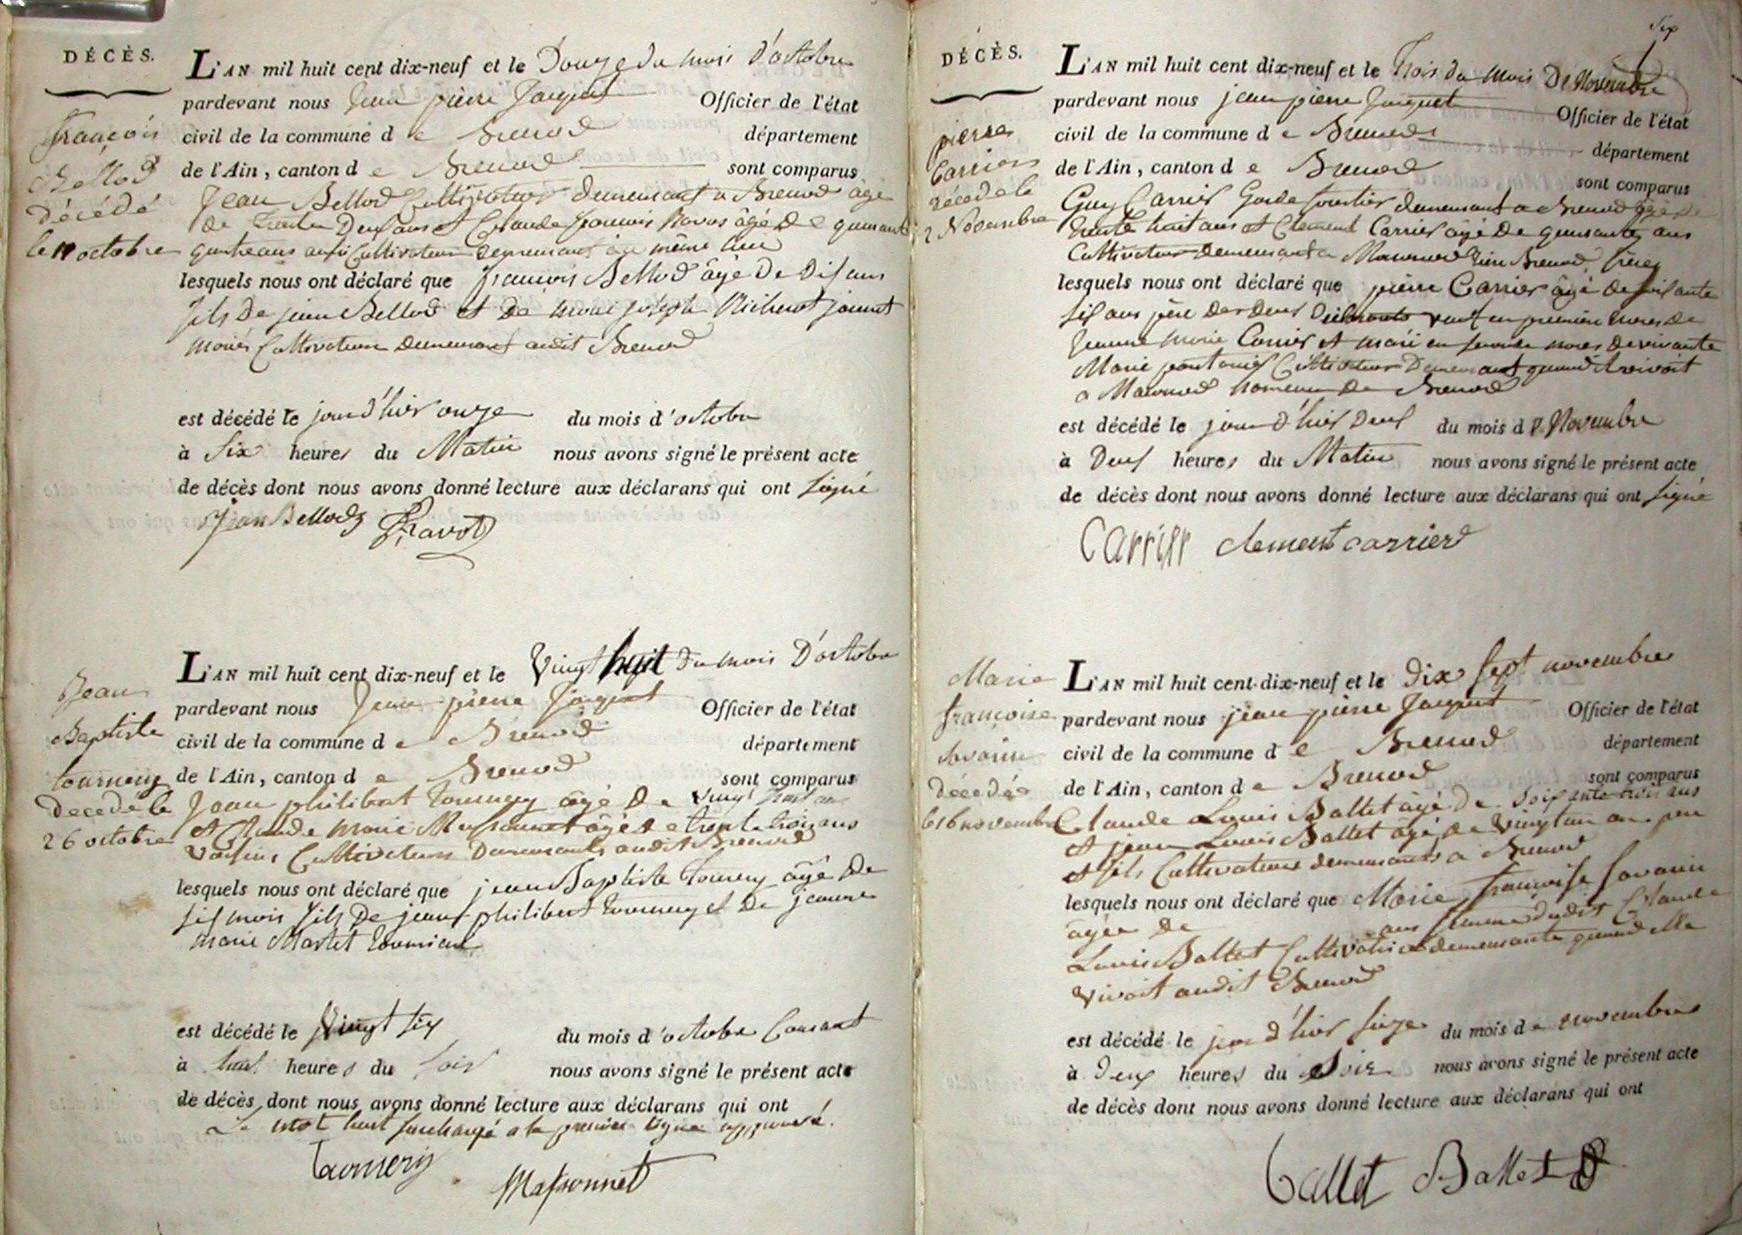 DÉCÈS.
françois
Bellod
décédé
le 11 octobre
L'AN mil huit cent dix-neuf et le Douze du mois d'octobre
pardevant nous Jean pierre Jacquet Officier de l'état
civil de la commune d e Brenod département
de l'Ain, canton d e Brenod sont comparus
Jean Bellod Cultivateur demeurant a Brenod âgé
de trente Deux ans et Claude françois Ravot âgé De quarante
quatre ans aussi Cultivateur demeurant au même lieu
lesquels nous ont déclaré que françois Bellod âgé De Dix ans
fils De jean Bellod et De marie joseph
mariés Cultivateurs demeurant audit Brenod
est décédé le jour d'hier onze du mois d'octobre
à Six heures du Matin nous avons signé le présent acte
de décès dont nous avons donné lecture aux déclarans qui ont signé
Jean Bellod Ravot
Jean
Baptiste
tournery
decede le
26 octobre
L'AN mil huit cent dix-neuf et le Vingt huit du mois D'octobre
pardevant nous Jean pierre Jacquet Officier de l'état
civil de la commune d e Brenod département
de l'Ain, canton d e Brenod sont comparus
Jean philibert tournery âgé De vingt huit ans
et Claude marie Massonnet âgé de trente trois ans
voisins Cultivateurs Demeurants audit Brenod
lesquels nous ont déclaré que jean Baptiste tournery âgé De
six mois fils De jean philibert tournery et De jeanne
marie Martet
est décédé le Vingt six du mois d'octobre Courant
à huit heures du soir nous avons signé le présent acte
de décès dont nous avons donné lecture aux déclarans qui ont
Le mot huit surchargé a la premier ligne approuvé.
tournery
Massonnet
Six
DÉCÈS.
pierre
Carrier
décédé le
2 Novembre
L'AN mil huit cent dix-neuf et le trois du mois De Novembre
pardevant nous jean pierre Jacquet Officier de l'état
civil de la commune d e Brenod département
de l'Ain, canton d e Brenod sont comparus
Guy Carrier Garde foretier demeurant a Brenod âgé de
trente huit ans et Clement Carrier âgé de quarante ans
Cultivateur demeurant a Macornod Brenod frères
lesquels nous ont déclaré que pierre Carrier âgé de soixante
six ans père des deux Declarants veuf en première noces de
Jeanne marie Carrier et marié en seconde noces de vivante
Marie Cultivateur Demeurant quand il vivoit
a Macornod hameau de Brenod
est décédé le jour d'hier Deux du mois d e Novembre
à Deux heures du Matin nous avons signé le présent acte
de décès dont nous avons donné lecture aux déclarans qui ont signé
Carrier clement carrier
Marie
françoise
Savarin
décédée
le 16 novembre
L'AN mil huit cent dix-neuf et le dix sept novembre
pardevant nous jean pierre Jacquet Officier de l'état
civil de la commune d e Brenod département
de l'Ain, canton d e Brenod sont comparus
Claude Louis Ballet âgé De soixante trois ans
et jean Louis Ballet âgé de vingt un ans père
et fils Cultivateurs demeurants a Brenod
lesquels nous ont déclaré que Marie françoise Savarin
âgée De ans femme dudit Claude
Louis Ballet Cultivatrice demeurante quand elle
vivoit audit Brenod
est décédé le jour d'hier seize du mois d e novembre
à Deux heures du Soir nous avons signé le présent acte
de décès dont nous avons donné lecture aux déclarans qui ont
Ballet Ballet